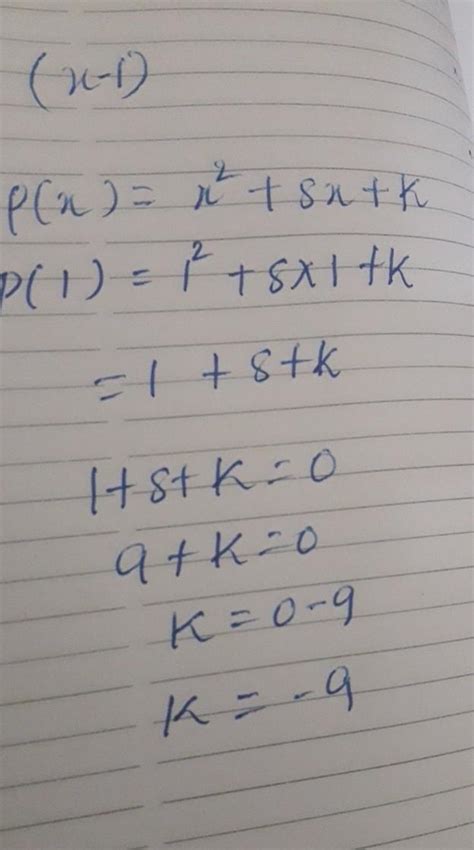 (x-1)
p(x) = x² + 8x + k
p(1) = 1² + 8x1 + k
= 1 + 8 + k
1 + 8 + k = 0
9 + k = 0
k = 0 - 9
k = - 9